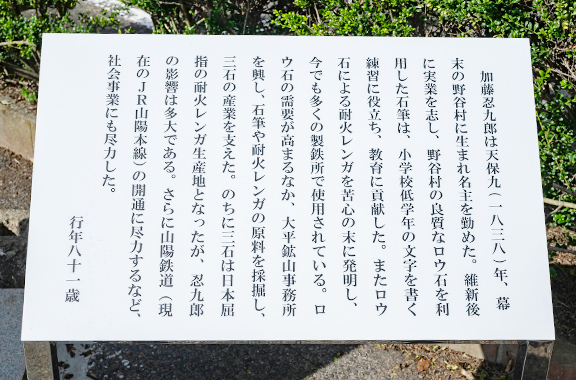 加藤忍九郎は天保九（一八三八）年、幕
末の野谷村に生まれ名主を勤めた。維新後
に実業を志し、野谷村の良質なロウ石を利
用した石筆は、小学校低学年の文字を書く
練習に役立ち、教育に貢献した。またロウ
石による耐火レンガを苦心の末に発明し、
今でも多くの製鉄所で使用されている。ロ
ウ石の需要が高まるなか、大平鉱山事務所
を興し、石筆や耐火レンガの原料を採掘し、
三石の産業を支えた。のちに三石は日本屈
指の耐火レンガ生産地となったが、忍九郎
の影響は多大である。さらに山陽鉄道（現
在のＪＲ山陽本線）の開通に尽力するなど、
社会事業にも尽力した。
行年八十一歳